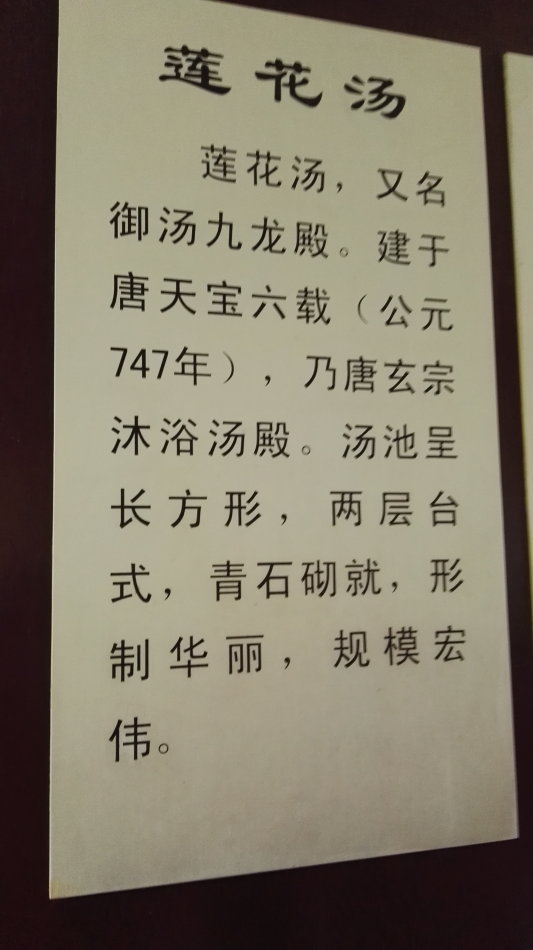 莲花汤
莲花汤，又名
御汤九龙殿。建于
唐天宝六载（公元
747年），乃唐玄宗
沐浴汤殿。汤池呈
长方形，两层台
式，青石砌就，形
制华丽，规模宏
伟。